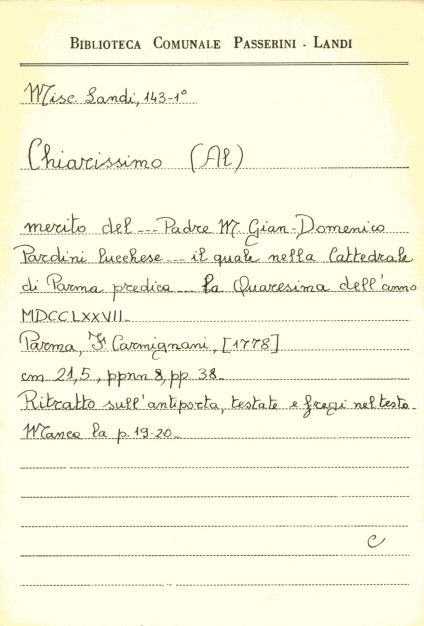 BIBLIOTECA COMUNALE PASSERINI - LANDI
Misc. Landi, 143-1°
Chiarissimo (Al)
merito del --- Padre M. Gian-Domenico
Pardini lucchese --- il quale nella Cattedrale
di Parma predica --- la Quaresima dell'anno
MDCCLXXVII.
Parma, F. Carmignani, [1778]
cm 21,5, ppnn 8, pp. 38.
Ritratto sull'antiporta, testate e fregi nel testo.
Manca la p. 19-20.
C